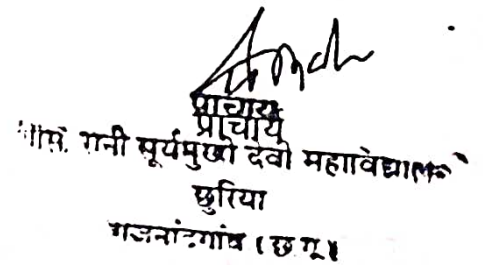 प्राचार्य
प्राचार्य
रानी सूर्यमुखी देवी महाविद्यालय
छुरिया
राजनांदगांव (छ.ग.)